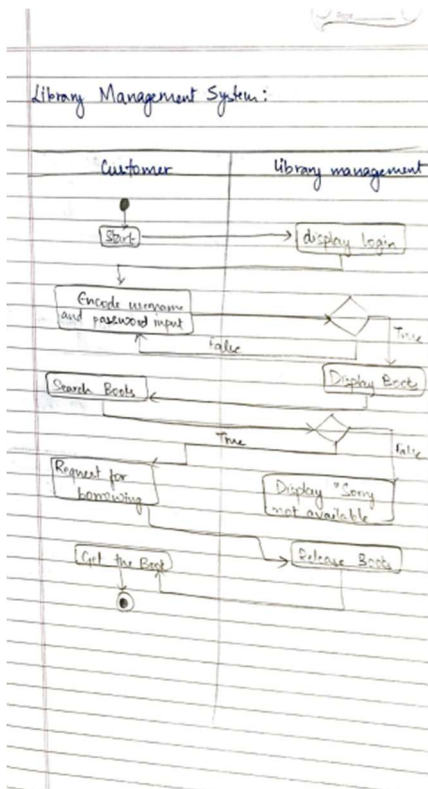 Library Management System:
Customer
Library management
Start
display login
Encode username
and password input
True
False
Display Books
Search Books
True
False
Request for
borrowing
Display "Sorry
not available
Release Books
Get the Book